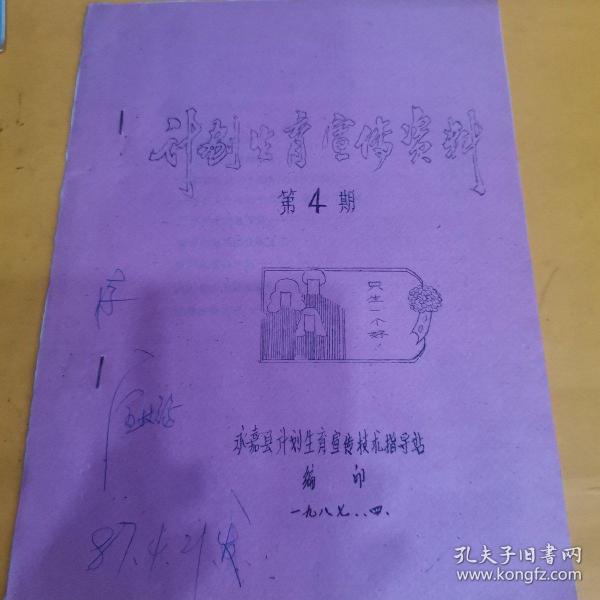 计划生育宣传资料
第4期
只生一个好!
永嘉县计划生育宣传技术指导站
编 印
一九八七.四.
存
87.4.21
孔夫子旧书网
www.kongfz.com